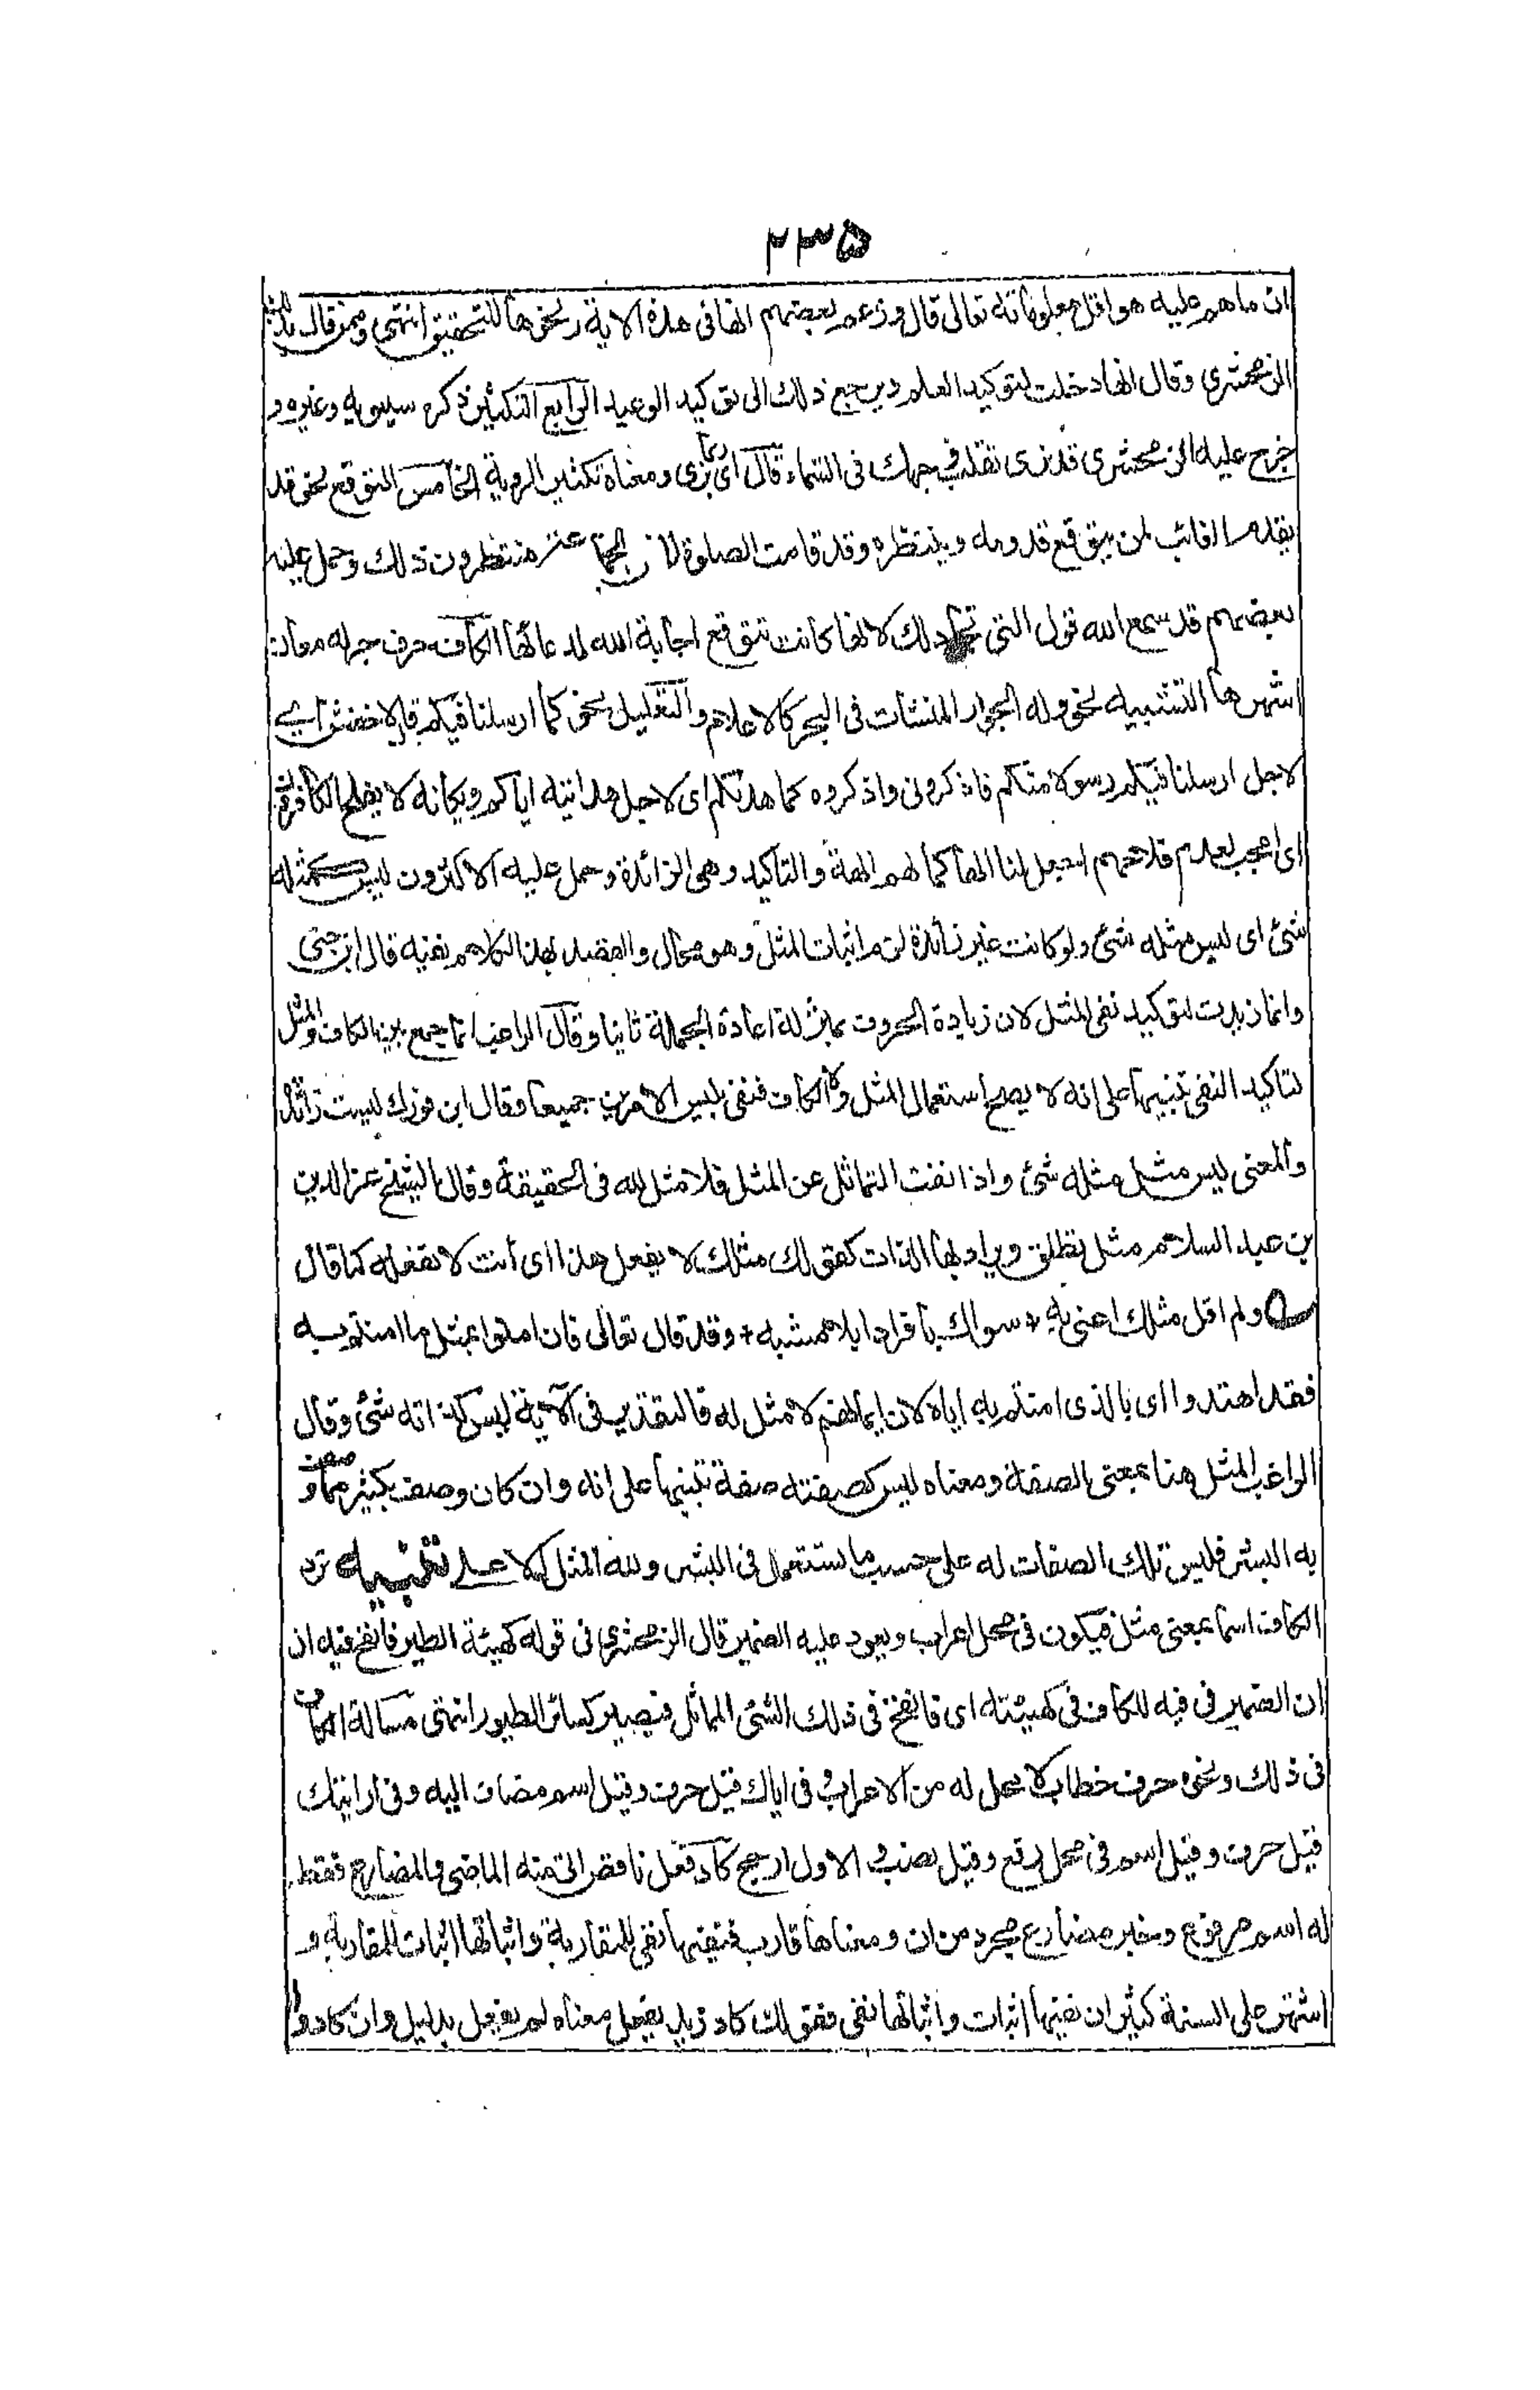 ٢٣٥
ان ما هم عليه هو اقل معلوماته تعالى قال وزعم بعضهم انها فى هذه الاية ونحوها للتحقيق انتهى وممن قال بذلك
الزمخشرى وقال انها دخلت لتوكيد العلم ويرجع ذلك الى توكيد الوعيد الرابع التكثير ذكره سيبويه وغيره و
خرج عليه الزمخشرى قد نرى تقلب وجهك فى السماء قال اى ربما نرى ومعناه تكثير الروية الخامس التوقع نحو قد
يقدم الغائب لمن يتوقع قدومه وينتظره وقد قامت الصلوة لان الجماعة منتظرون ذلك وحمل عليه
بعضهم قد سمع الله قول التى تجادلك لانها كانت تتوقع اجابة الله لدعائها الكاف حرف جر له معان
اشهرها التشبيه نحو وله الجوار المنشات فى البحر كالاعلام والتعليل نحو كما ارسلنا فيكم قال الاخفش اى
لاجل ارسلنا فيكم رسولا منكم فاذكرونى واذكروه كما هدىكم اى لاجل هدايته اياكم ويكأنه لا يفلح الكافرون
اى اعجب لعدم فلاحهم اجعل لنا الها كما لهم الهة والتاكيد وهى الزائدة وحمل عليه الاكثرون ليس كمثله
شئ اى ليس مثله شئ ولو كانت غير زائدة لزم اثبات المثل وهو محال والقصد بهذا الكلام نفيه قال ابن جنى
وانما زيدت لتوكيد نفى المثل لان زيادة الحروف بمنزلة اعادة الجملة ثانيا وقال الراغب انما جمع بين الكاف والمثل
لتاكيد النفى تنبيها على انه لا يصح استعمال المثل ولا الكاف فنفى بليس الامرين جميعا وقال ابن فورك ليست زائدة
والمعنى ليس مثل مثله شئ واذا نفت التماثل عن المثل فلا مثل لله فى الحقيقة وقال الشيخ عز الدين
بن عبد السلام مثل تطلق ويراد بها الذات كقولك مثلك لا يفعل هذا اى أنت لا تفعله كما قال
ولم اقل مثلك اعنى به + سواك يا فردا بلا مشبه + وقد قال تعالى فان امنوا بمثل ما امنتم به
فقد اهتدوا اى بالذى امنتم به اياه لان ايمانهم لا مثل له فالتقدير فى الآية ليس كذاته شئ وقال
الراغب المثل هنا بمعنى الصفة ومعناه ليس كصفته صفة تنبيها على انه وان كان وصف بكثير مما وصف
به البشر فليس تلك الصفات له على حسب ما ستتعمل فى البشر ولله المثل الاعلى تنبيه ترد
الكاف اسما بمعنى مثل فيكون فى محل اعراب ويعود عليه الضمير قال الزمخشرى فى قوله كهيئة الطير فانفخ فيه ان
ان الضمير فى فيه للكاف فى كهيئته اى فانفخ فى ذلك الشئ المماثل فيصير كسائر الطيور انتهى مسالة الكاف
فى ذلك ونحوه حرف خطاب لا محل له من الاعراب و فى اياك قيل حرف وقيل اسم مضاف اليه وفى ارايتك
قيل حرف وقيل اسم فى محل رفع وقيل نصب و الاول ارجح كاد فعل ناقص اتى منه الماضى والمضارع فقط
له اسم مرفوع وخبر مضارع مجرد من ان ومعناها قارب فنفيها نفى للمقاربة واثباتها اثبات للمقاربة و
اشتهر على السنة كثير ان نفيها اثبات واثباتها نفى فقولك كاد زيد يفعل معناه لم يفعل بدليل وان كادوا